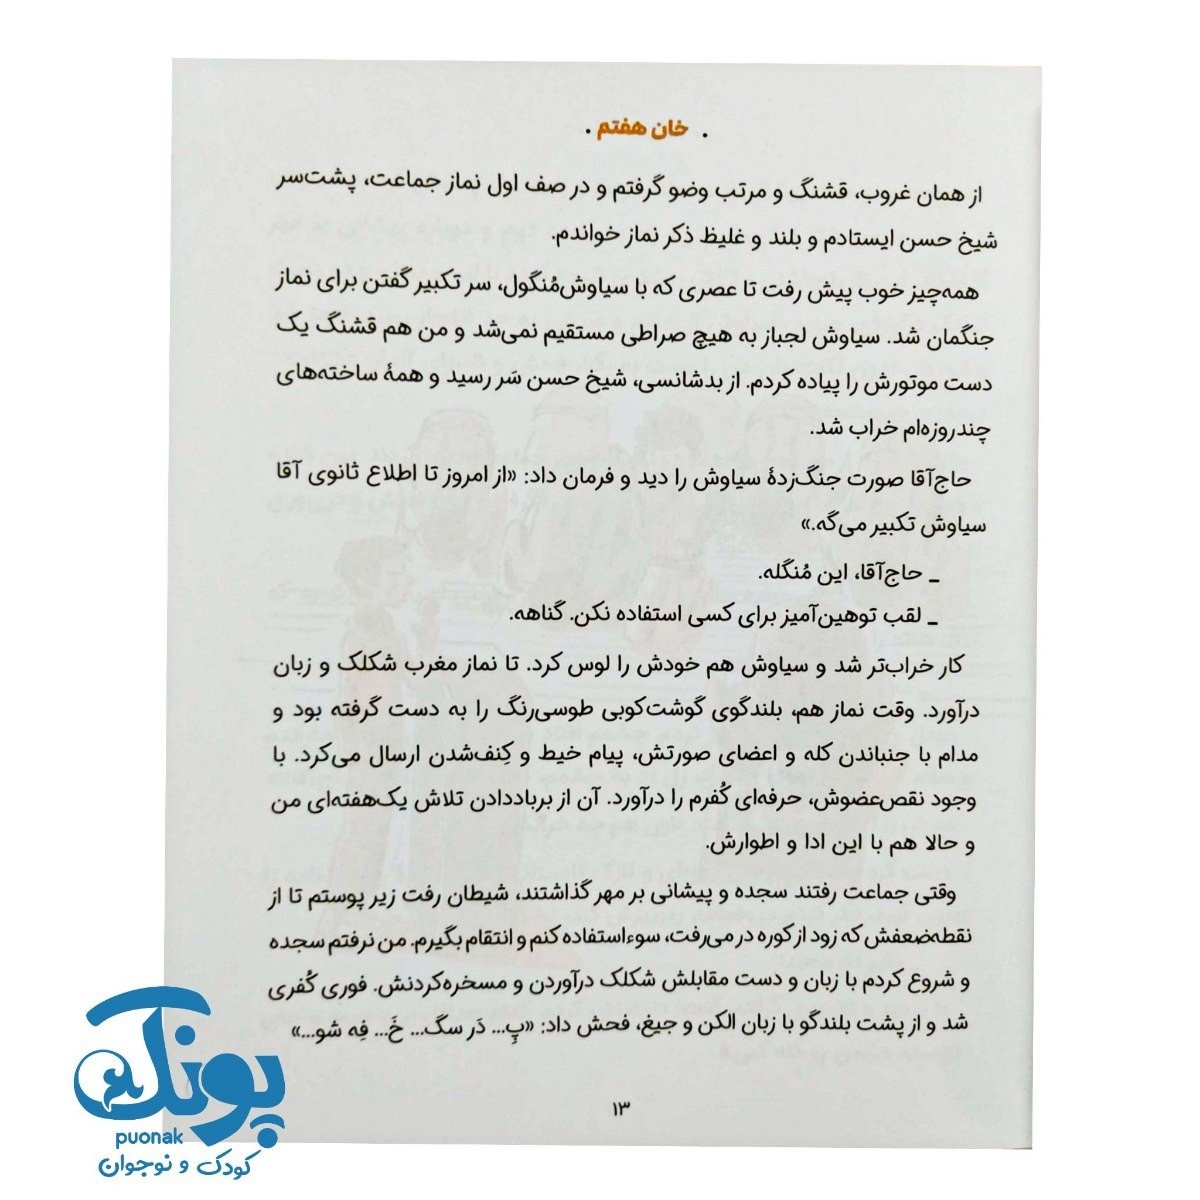 . خان هفتم .
از همان غروب، قشنگ و مرتب وضو گرفتم و در صف اول نماز جماعت، پشت‌سر
شیخ حسن ایستادم و بلند و غلیظ ذکر نماز خواندم.
همه‌چیز خوب پیش رفت تا عصری که با سیاوش‌مُنگول، سر تکبیر گفتن برای نماز
جنگمان شد. سیاوش لجباز به هیچ صراطی مستقیم نمی‌شد و من هم قشنگ یک
دست موتورش را پیاده کردم. از بدشانسی، شیخ حسن سَر رسید و همهٔ ساخته‌های
چندروزه‌ام خراب شد.
حاج‌آقا صورت جنگ‌زدهٔ سیاوش را دید و فرمان داد: «از امروز تا اطلاع ثانوی آقا
سیاوش تکبیر می‌گه.»
ـ حاج‌آقا، این مُنگله.
ـ لقب توهین‌آمیز برای کسی استفاده نکن. گناهه.
کار خراب‌تر شد و سیاوش هم خودش را لوس کرد. تا نماز مغرب شکلک و زبان
درآورد. وقت نماز هم، بلندگوی گوشت‌کوبی طوسی‌رنگ را به دست گرفته بود و
مدام با جنباندن کله و اعضای صورتش، پیام خیط و کِنف‌شدن ارسال می‌کرد. با
وجود نقص‌عضوش، حرفه‌ای کُفرم را درآورد. آن از برباددادن تلاش یک‌هفته‌ای من
و حالا هم با این ادا و اطوارش.
وقتی جماعت رفتند سجده و پیشانی بر مهر گذاشتند، شیطان رفت زیر پوستم تا از
نقطه‌ضعفش که زود از کوره در می‌رفت، سوءاستفاده کنم و انتقام بگیرم. من نرفتم سجده
و شروع کردم با زبان و دست مقابلش شکلک درآوردن و مسخره‌کردنش. فوری کُفری
شد و از پشت بلندگو با زبان الکن و جیغ، فحش داد: «پِ... دَر سگ... خَ... فِه شو...»
۱۳
پونک
puonak
کودک و نوجوان